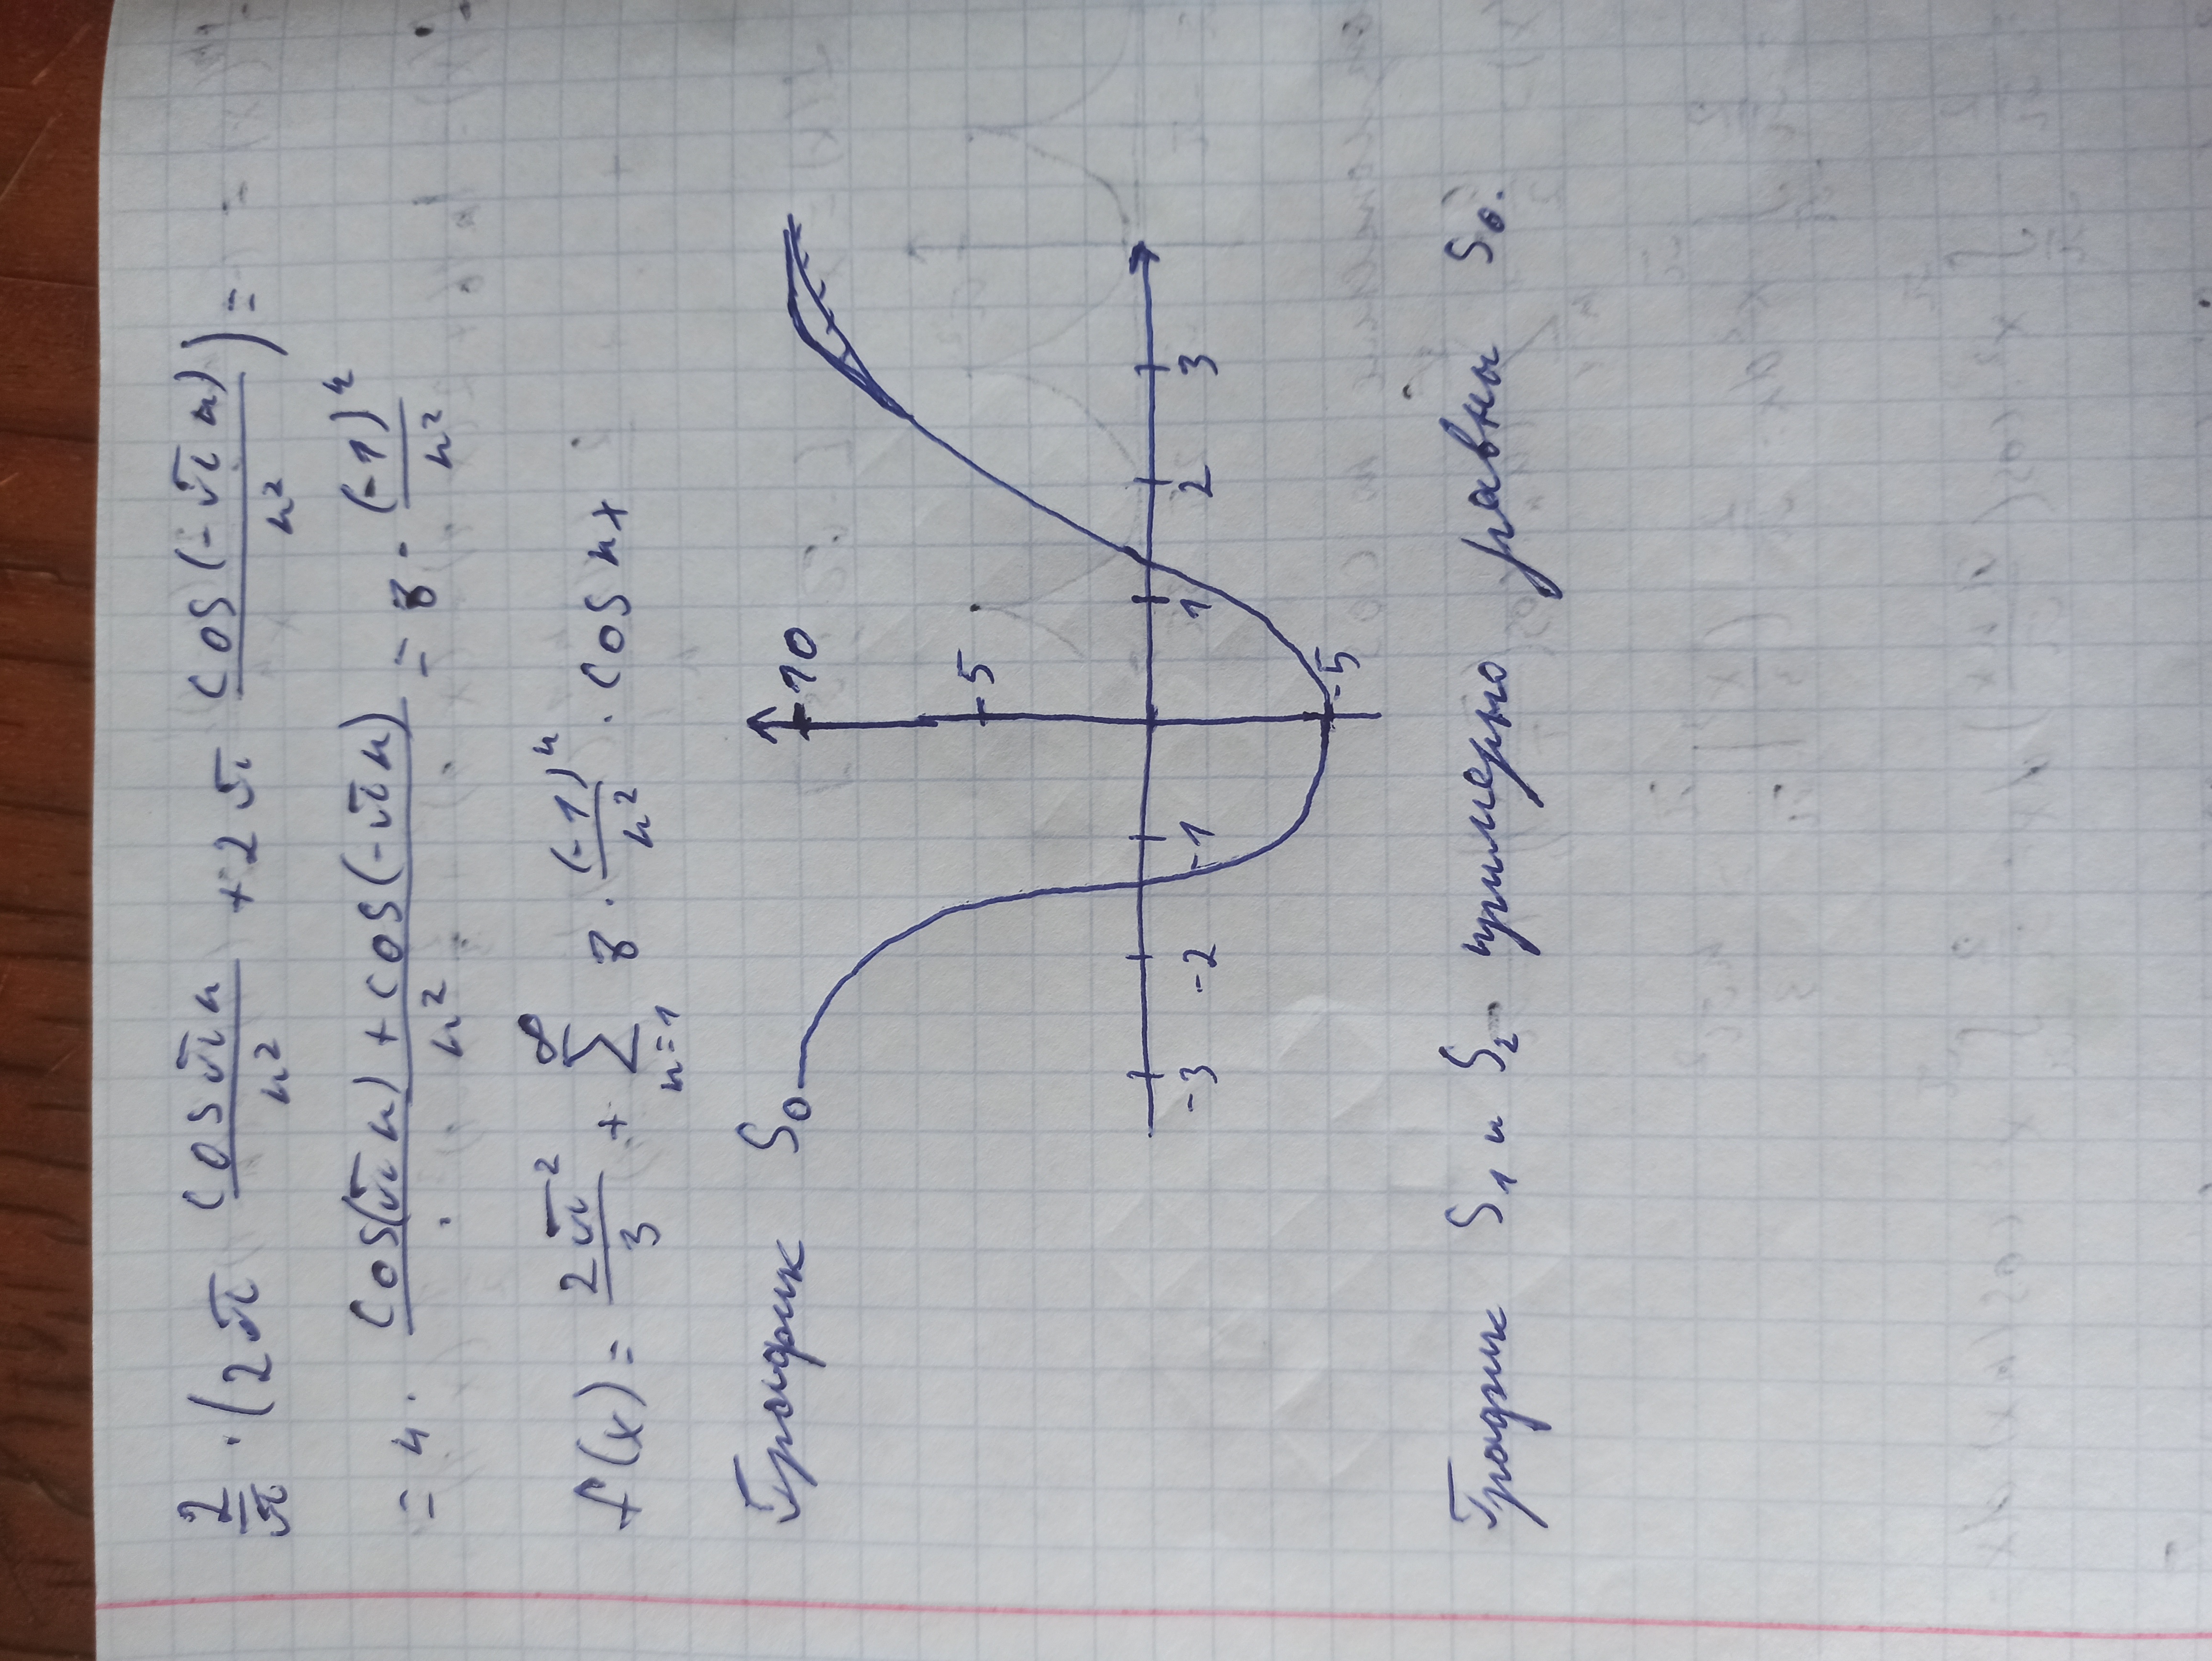 2/π · (2π cos πn / n² + 2π cos(-πn) / n²) =
= 4 · (cos(πn) + cos(-πn)) / n² = 8 · (-1)ⁿ / n²
f(x) = 2π² / 3 + ∑ₙ₌₁^∞ 8 · (-1)ⁿ / n² · cos nx
График S₀
10
5
-3 -2 -1 1 2 3
-5
График S₁ и S₂ примерно равны S₀.